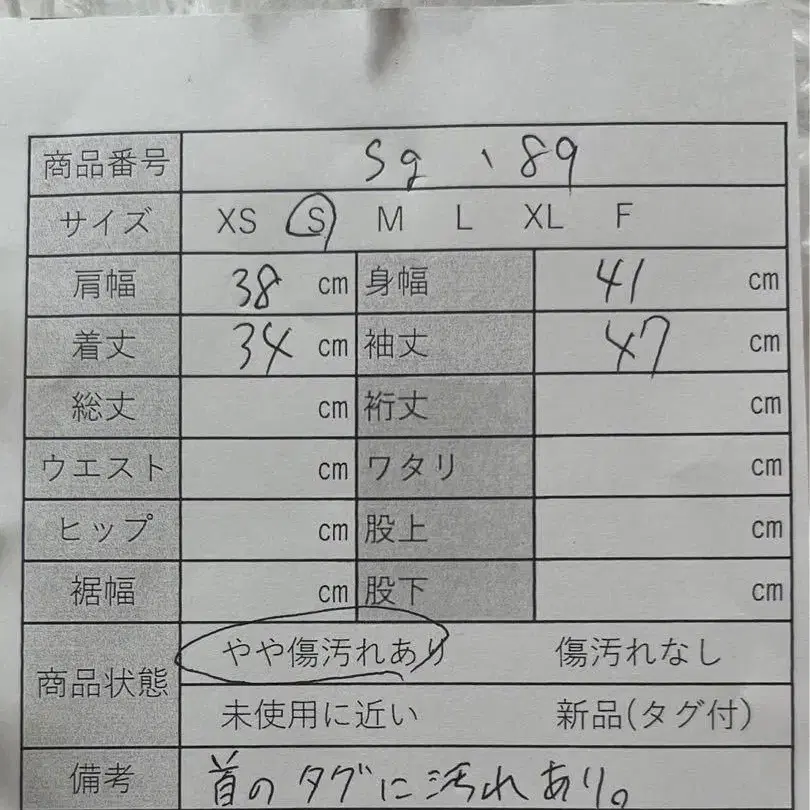 商品番号 Sg 、89
サイズ XS S M L XL F
肩幅 38 cm 身幅 41 cm
着丈 34 cm 袖丈 47 cm
総丈 cm 裄丈 cm
ウエスト cm ワタリ cm
ヒップ cm 股上 cm
裾幅 cm 股下 cm
商品状態 やや傷汚れあり 傷汚れなし
未使用に近い 新品(タグ付)
備考 首のタグに汚れあり。